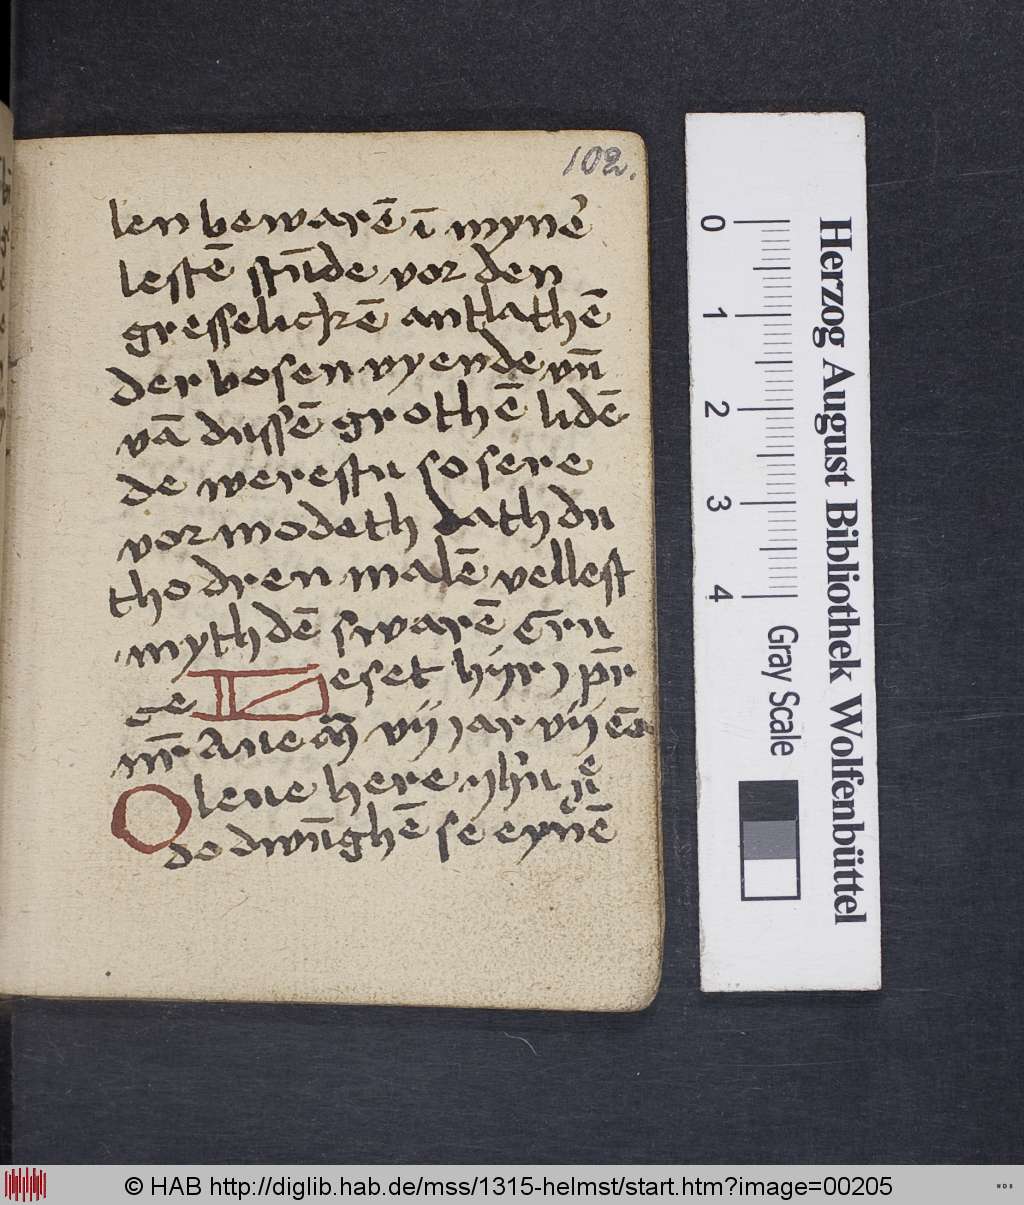 102.
len bewarē ī myne᷑
lestē stūde vor den
gresselickē antlathē
der bosen vyende vn̄
vā dussē grothē lidē
de werestu so sere
vor modeth dath du
tho dren malē vellest
myth dē swarē cru
ce Leset hijr j pr̄
nr̄ Aue mͣ vij jar vij
O leue here jhū
do dwūghē se eynē
0 1 2 3 4
Gray Scale
Herzog August Bibliothek Wolfenbüttel
© HAB http://diglib.hab.de/mss/1315-helmst/start.htm?image=00205